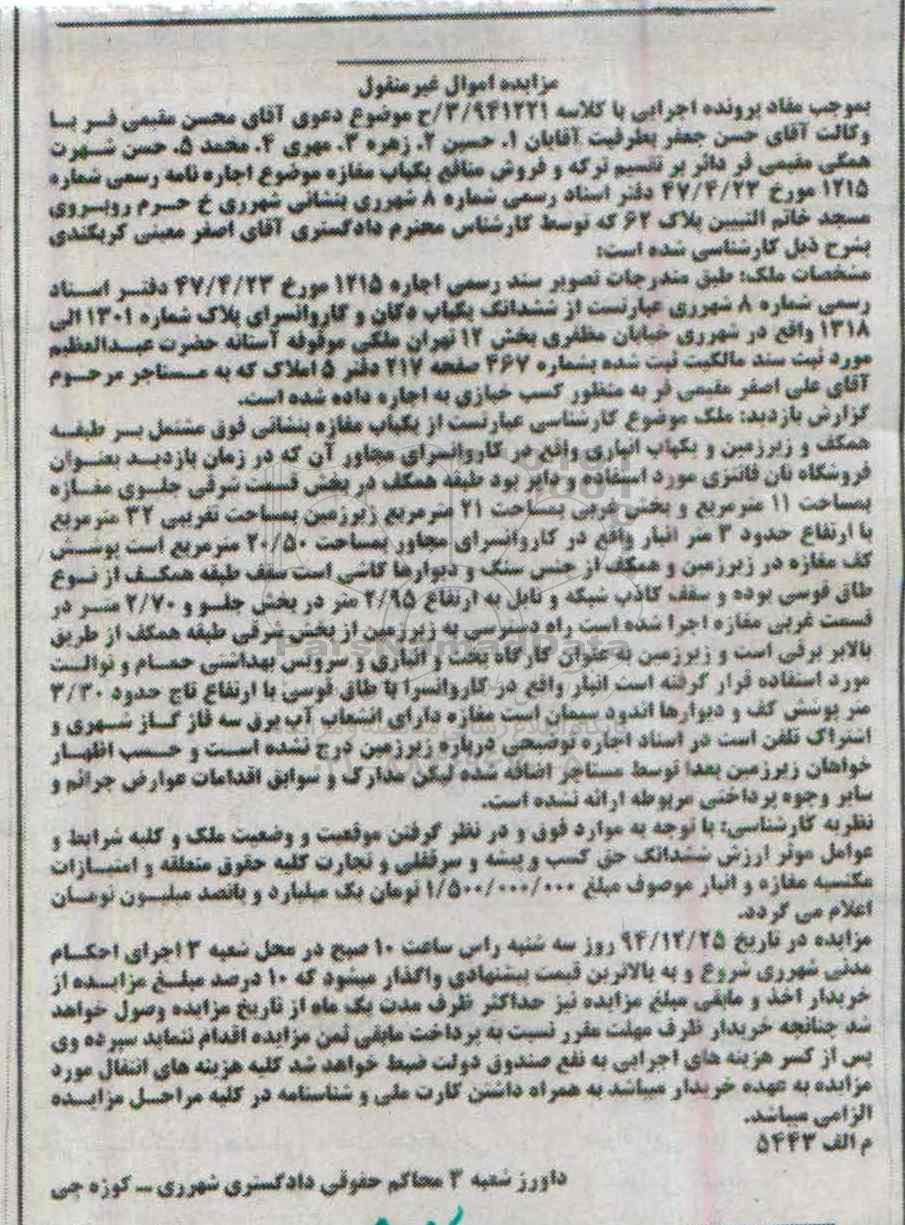 مزایده اموال غیرمنقول
بموجب مفاد پرونده اجرایی با کلاسه ۳/۹۴۱۲۲۱/ح موضوع دعوی آقای محسن مقیمی فر با
وکالت آقای حسن جعفر بطرفیت آقایان ۱. حسین ۲. زهره ۳. مهری ۴. محمد ۵. حسن شهرت
همگی مقیمی فر دائر بر تقسیم ترکه و فروش منافع یکباب مغازه موضوع اجاره نامه رسمی شماره
۱۲۱۵ مورخ ۴۷/۴/۲۳ دفتر اسناد رسمی شماره ۸ شهرری بنشانی شهرری خ حرم روبروی
مسجد خاتم النبیین پلاک ۶۲ که توسط کارشناس محترم دادگستری آقای اصغر معینی کربکندی
بشرح ذیل کارشناسی شده است:
مشخصات ملک: طبق مندرجات تصویر سند رسمی اجاره ۱۲۱۵ مورخ ۴۷/۴/۲۳ دفتر اسناد
رسمی شماره ۸ شهرری عبارتست از ششدانگ یکباب دکان و کاروانسرای پلاک شماره ۱۳۰۱ الی
۱۳۱۸ واقع در شهرری خیابان مظفری بخش ۱۲ تهران ملکی موقوفه آستانه حضرت عبدالعظیم
مورد ثبت سند مالکیت ثبت شده بشماره ۴۶۷ صفحه ۲۱۷ دفتر ۵ املاک که به مستاجر مرحوم
آقای علی اصغر مقیمی فر به منظور کسب خبازی به اجاره داده شده است.
گزارش بازدید: ملک موضوع کارشناسی عبارتست از یکباب مغازه بنشانی فوق مشتمل بر طبقه
همکف و زیرزمین و یکباب انباری واقع در کاروانسرای مجاور آن که در زمان بازدید بعنوان
فروشگاه نان فانتزی مورد استفاده و دایر بود طبقه همکف در بخش قسمت شرقی جلوی مغازه
بمساحت ۱۱ مترمربع و بخش غربی بمساحت ۲۱ مترمربع زیرزمین بمساحت تقریبی ۳۲ مترمربع
با ارتفاع حدود ۳ متر انبار واقع در کاروانسرای مجاور بمساحت ۲۰/۵۰ مترمربع است پوشش
کف مغازه در زیرزمین و همکف از جنس سنگ و دیوارها کاشی است سقف طبقه همکف از نوع
طاق قوسی بوده و سقف کاذب شبکه و تایل به ارتفاع ۲/۹۵ متر در بخش جلو و ۲/۷۰ متر در
قسمت غربی مغازه اجرا شده است راه دسترسی به زیرزمین از بخش شرقی طبقه همکف از طریق
بالابر برقی است و زیرزمین به عنوان کارگاه پخت و انباری و سرویس بهداشتی حمام و توالت
مورد استفاده قرار گرفته است انبار واقع در کاروانسرا با طاق قوسی با ارتفاع تاج حدود ۳/۳۰
متر پوشش کف و دیوارها اندود سیمان است مغازه دارای انشعاب آب برق سه فاز گاز شهری و
اشتراک تلفن است در اسناد اجاره توضیحی درباره زیرزمین درج نشده است و حسب اظهار
خواهان زیرزمین بعدا توسط مستاجر اضافه شده لیکن مدارک و سوابق اقدامات عوارض جرائم و
سایر وجوه پرداختی مربوطه ارائه نشده است.
نظریه کارشناسی: با توجه به موارد فوق و در نظر گرفتن موقعیت و وضعیت ملک و کلیه شرایط و
عوامل موثر ارزش ششدانگ حق کسب و پیشه و سرقفلی و تجارت کلیه حقوق متعلقه و امتیازات
مکتسبه مغازه و انبار موصوف مبلغ ۱/۵۰۰/۰۰۰/۰۰۰ تومان یک میلیارد و پانصد میلیون تومان
اعلام می گردد.
مزایده در تاریخ ۹۴/۱۲/۲۵ روز سه شنبه راس ساعت ۱۰ صبح در محل شعبه ۳ اجرای احکام
مدنی شهرری شروع و به بالاترین قیمت پیشنهادی واگذار میشود که ۱۰ درصد مبلغ مزایده از
خریدار اخذ و مابقی مبلغ مزایده نیز حداکثر ظرف مدت یک ماه از تاریخ مزایده وصول خواهد
شد چنانچه خریدار ظرف مهلت مقرر نسبت به پرداخت مابقی ثمن مزایده اقدام ننماید سپرده وی
پس از کسر هزینه های اجرایی به نفع صندوق دولت ضبط خواهد شد کلیه هزینه های انتقال مورد
مزایده به عهده خریدار میباشد به همراه داشتن کارت ملی و شناسنامه در کلیه مراحل مزایده
الزامی میباشد.
م الف ۵۴۴۳
داورز شعبه ۳ محاکم حقوقی دادگستری شهرری ــ کوزه چی
ParsNamadData